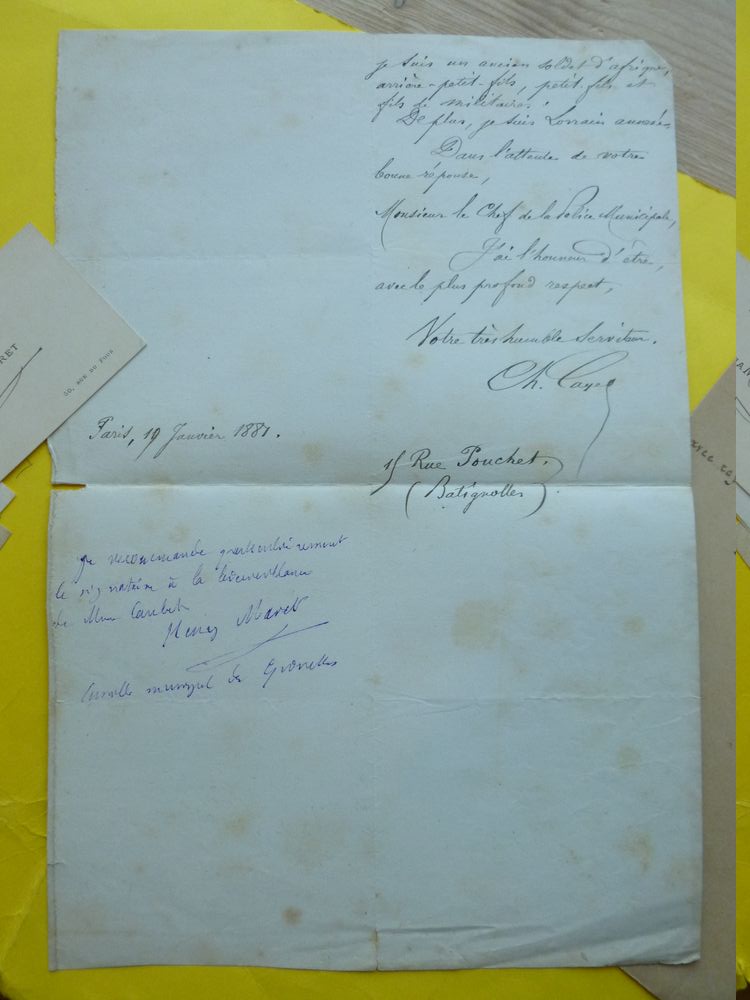 je suis un ancien soldat d'afrique,
arrière-petit-fils, petit-fils et
fils de militaire.
De plus, je suis Lorrain annexé.
Dans l'attente de votre
bonne réponse,
Monsieur le Chef de la Police Municipale,
J'ai l'honneur d'être,
avec le plus profond respect,
Votre très humble Serviteur.
Ch.
Paris, 19 Janvier 1881.
15 Rue Pouchet.
(Batignolles)
je recommande particulièrement
le signataire à la bienveillance
de Caubet
Henry Maret
municipal des Epinettes
RET
30, RUE DU FOUR
avec